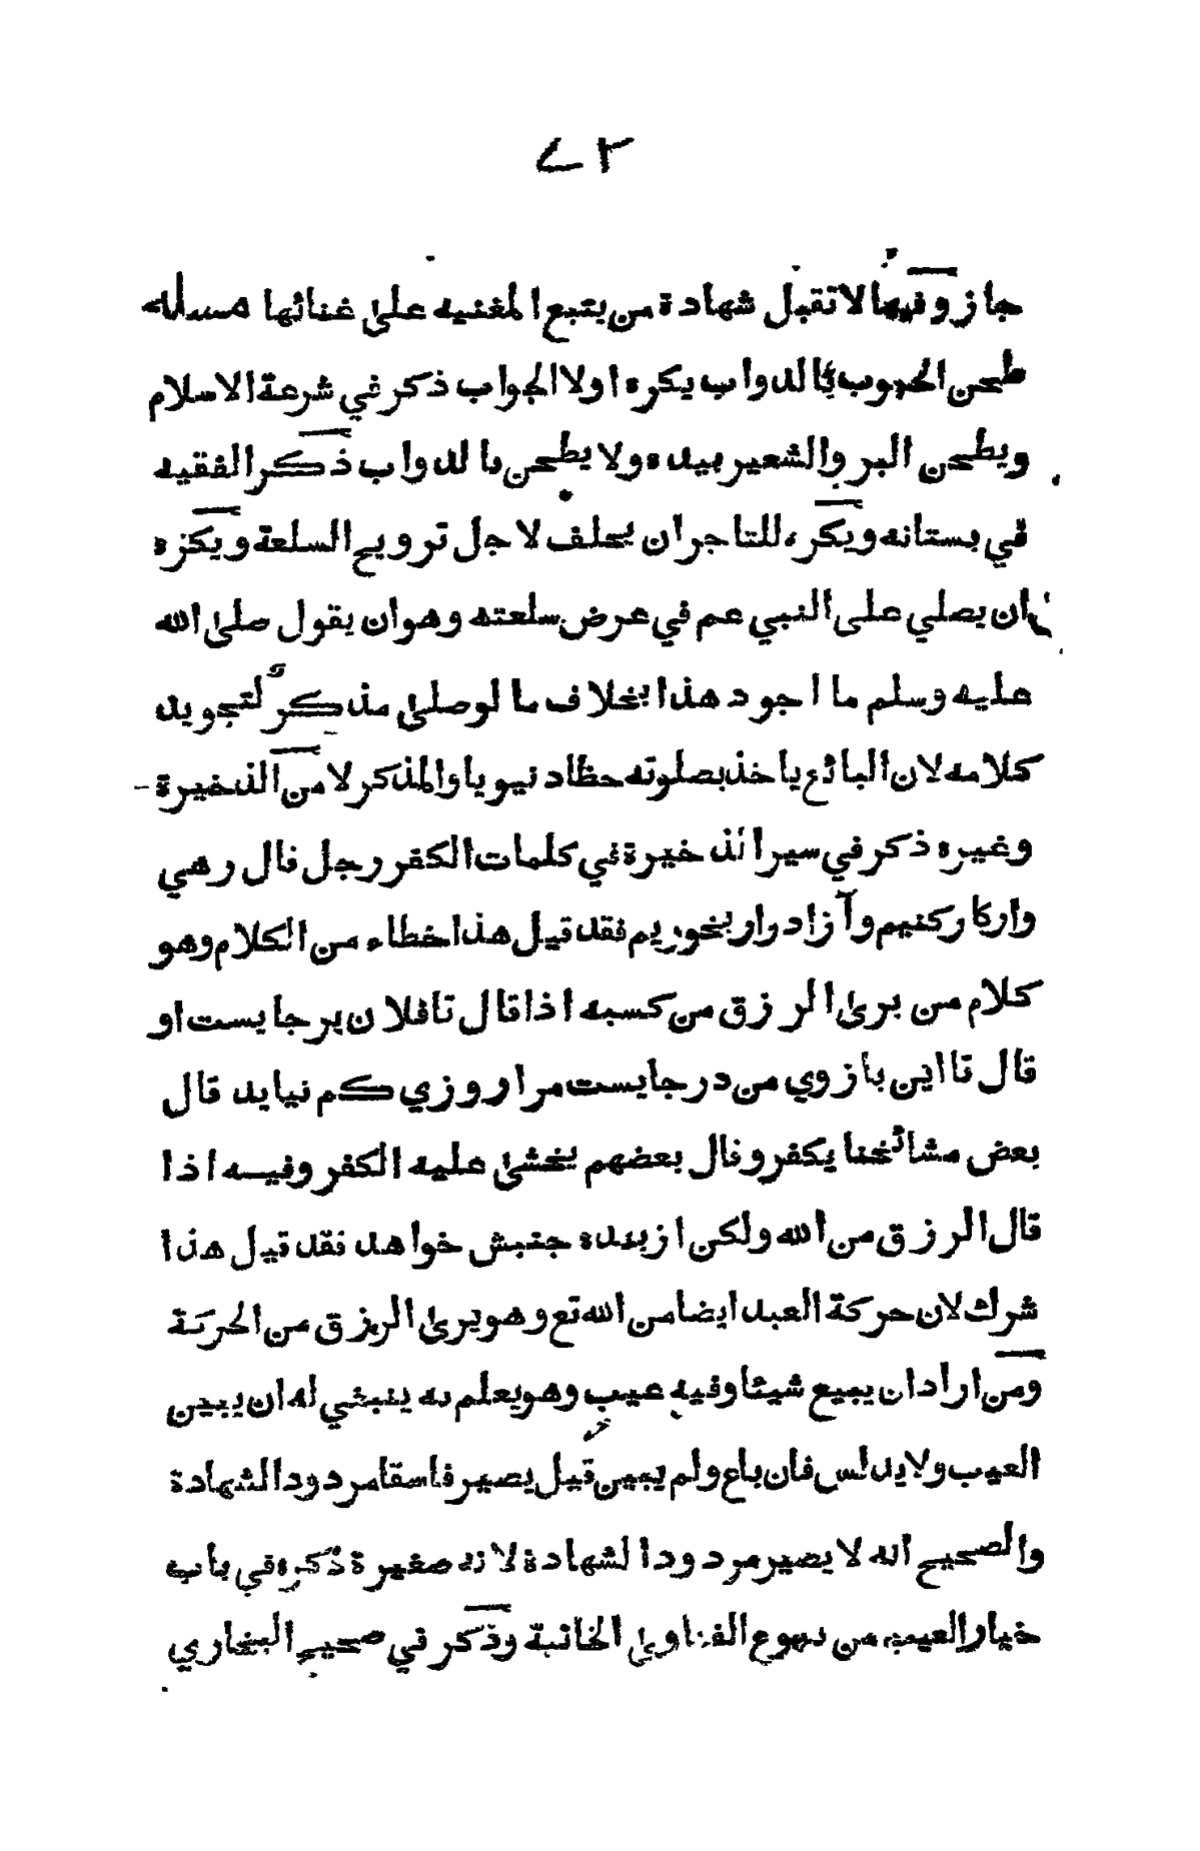 ٧٢
جاز وفيها لا تقبل شهادة من يتبع المغنيه على غنائها مسئله
طحن الحبوب بالدواب يكره اولا الجواب ذكر في شرعة الاسلام
ويطحن البر والشعير بيده ولا يطحن بالدواب ذكر الفقيه
في بستانه ويكره للتاجر ان يحلف لاجل ترويح السلعة ويكره
ان يصلي على النبي عم في عرض سلعته وهو ان يقول صلى الله
عليه وسلم ما اجود هذا بخلاف ما لو صلى مذكر لتجويد
كلامه لان البائع ياخذ بصلوته حظا دنيويا والمذكر لا من الذخيرة
وغيره ذكر في سير الذخيرة في كلمات الكفر رجل قال رهي
وار كار كنيم وآزاد وار بخوريم فقد قيل هذا خطاء من الكلام وهو
كلام من يرى الرزق من كسبه اذا قال تا فلان بر جايست او
قال تا اين بازوي من در جايست مرا روزي كم نيايد قال
بعض مشائخنا يكفر وقال بعضهم يخشى عليه الكفر وفيه اذا
قال الرزق من الله ولكن از بنده جنبش خواهد فقد قيل هذا
شرك لان حركة العبد ايضا من الله تع وهو يرى الرزق من الحركة
ومن اراد ان يبيع شيئا وفيه عيب وهو يعلم به ينبغي له ان يبين
العيب ولا يدلس فان باع ولم يبين قيل يصير فاسقا مردود الشهادة
والصحيح انه لا يصير مردود الشهادة لانه صغيرة ذكره في باب
خيار العيب من بيوع الفتاوى الخانية وذكر في صحيح البخاري